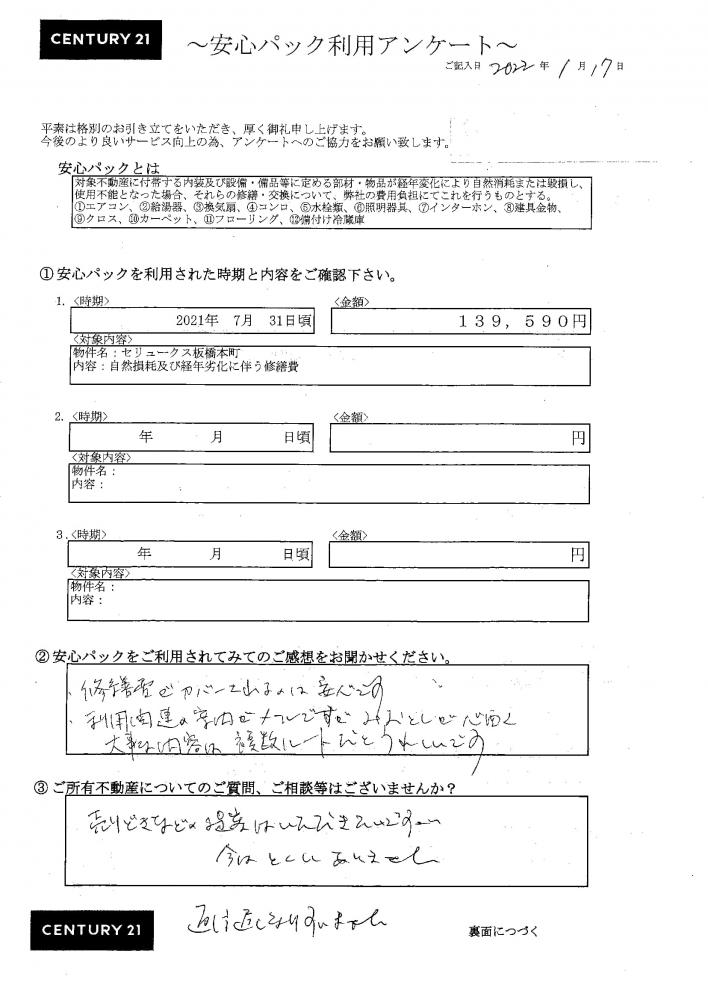 CENTURY 21
～安心パック利用アンケート～
ご記入日 2022 年 1 月 17 日
平素は格別のお引き立てをいただき、厚く御礼申し上げます。
今後のより良いサービス向上の為、アンケートへのご協力をお願い致します。
安心パックとは
対象不動産に付帯する内装及び設備・備品等に定める部材・物品が経年変化により自然消耗または毀損し、
使用不能となった場合、それらの修繕・交換について、弊社の費用負担にてこれを行うものとする。
①エアコン、②給湯器、③換気扇、④コンロ、⑤水栓類、⑥照明器具、⑦インターホン、⑧建具金物、
⑨クロス、⑩カーペット、⑪フローリング、⑫備付け冷蔵庫
①安心パックを利用された時期と内容をご確認下さい。
1. 〈時期〉 〈金額〉
2021年 7月 31日頃 139，590円
〈対象内容〉
物件名：セリュークス板橋本町
内容：自然損耗及び経年劣化に伴う修繕費
2. 〈時期〉 〈金額〉
年 月 日頃 円
〈対象内容〉
物件名：
内容：
3. 〈時期〉 〈金額〉
年 月 日頃 円
〈対象内容〉
物件名：
内容：
②安心パックをご利用されてみてのご感想をお聞かせください。
・修繕費がカバー出来るのは安心です
・利用関連の案内がメールですが みおとしが心配
大事な内容は複数ルートだとうれしいです
③ご所有不動産についてのご質問、ご相談等はございませんか？
売りどきなどの提案はいただきたいです
今はとくにありません
返信遅くなりすいません
CENTURY 21
裏面につづく